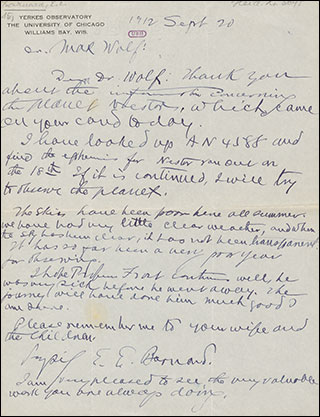 YERKES OBSERVATORY
THE UNIVERSITY OF CHICAGO
WILLIAMS BAY, WIS.
1912 Sept 20
Dr. Max Wolf:
Dear Dr. Wolf: Thank you
about the
the planet Nestor, which came
on your card today.
I have looked up A N 4588 and
find the ephemeris for Nestor ran out on
the 18th. If it is continued, I will try
to observe the planet.
The skies have been poor here all summer
we have had very little clear weather, and when
the sky has been clear, it has not been transparent.
It has so far been a very poor year
for observing.
I hope Frost will be
was very sick before he went away. The
journey will have done him much good I
am sure.
Please remember me to your wife and
the children.
E. E. Barnard.
I am very pleased to see the very valuable
work you are always doing.